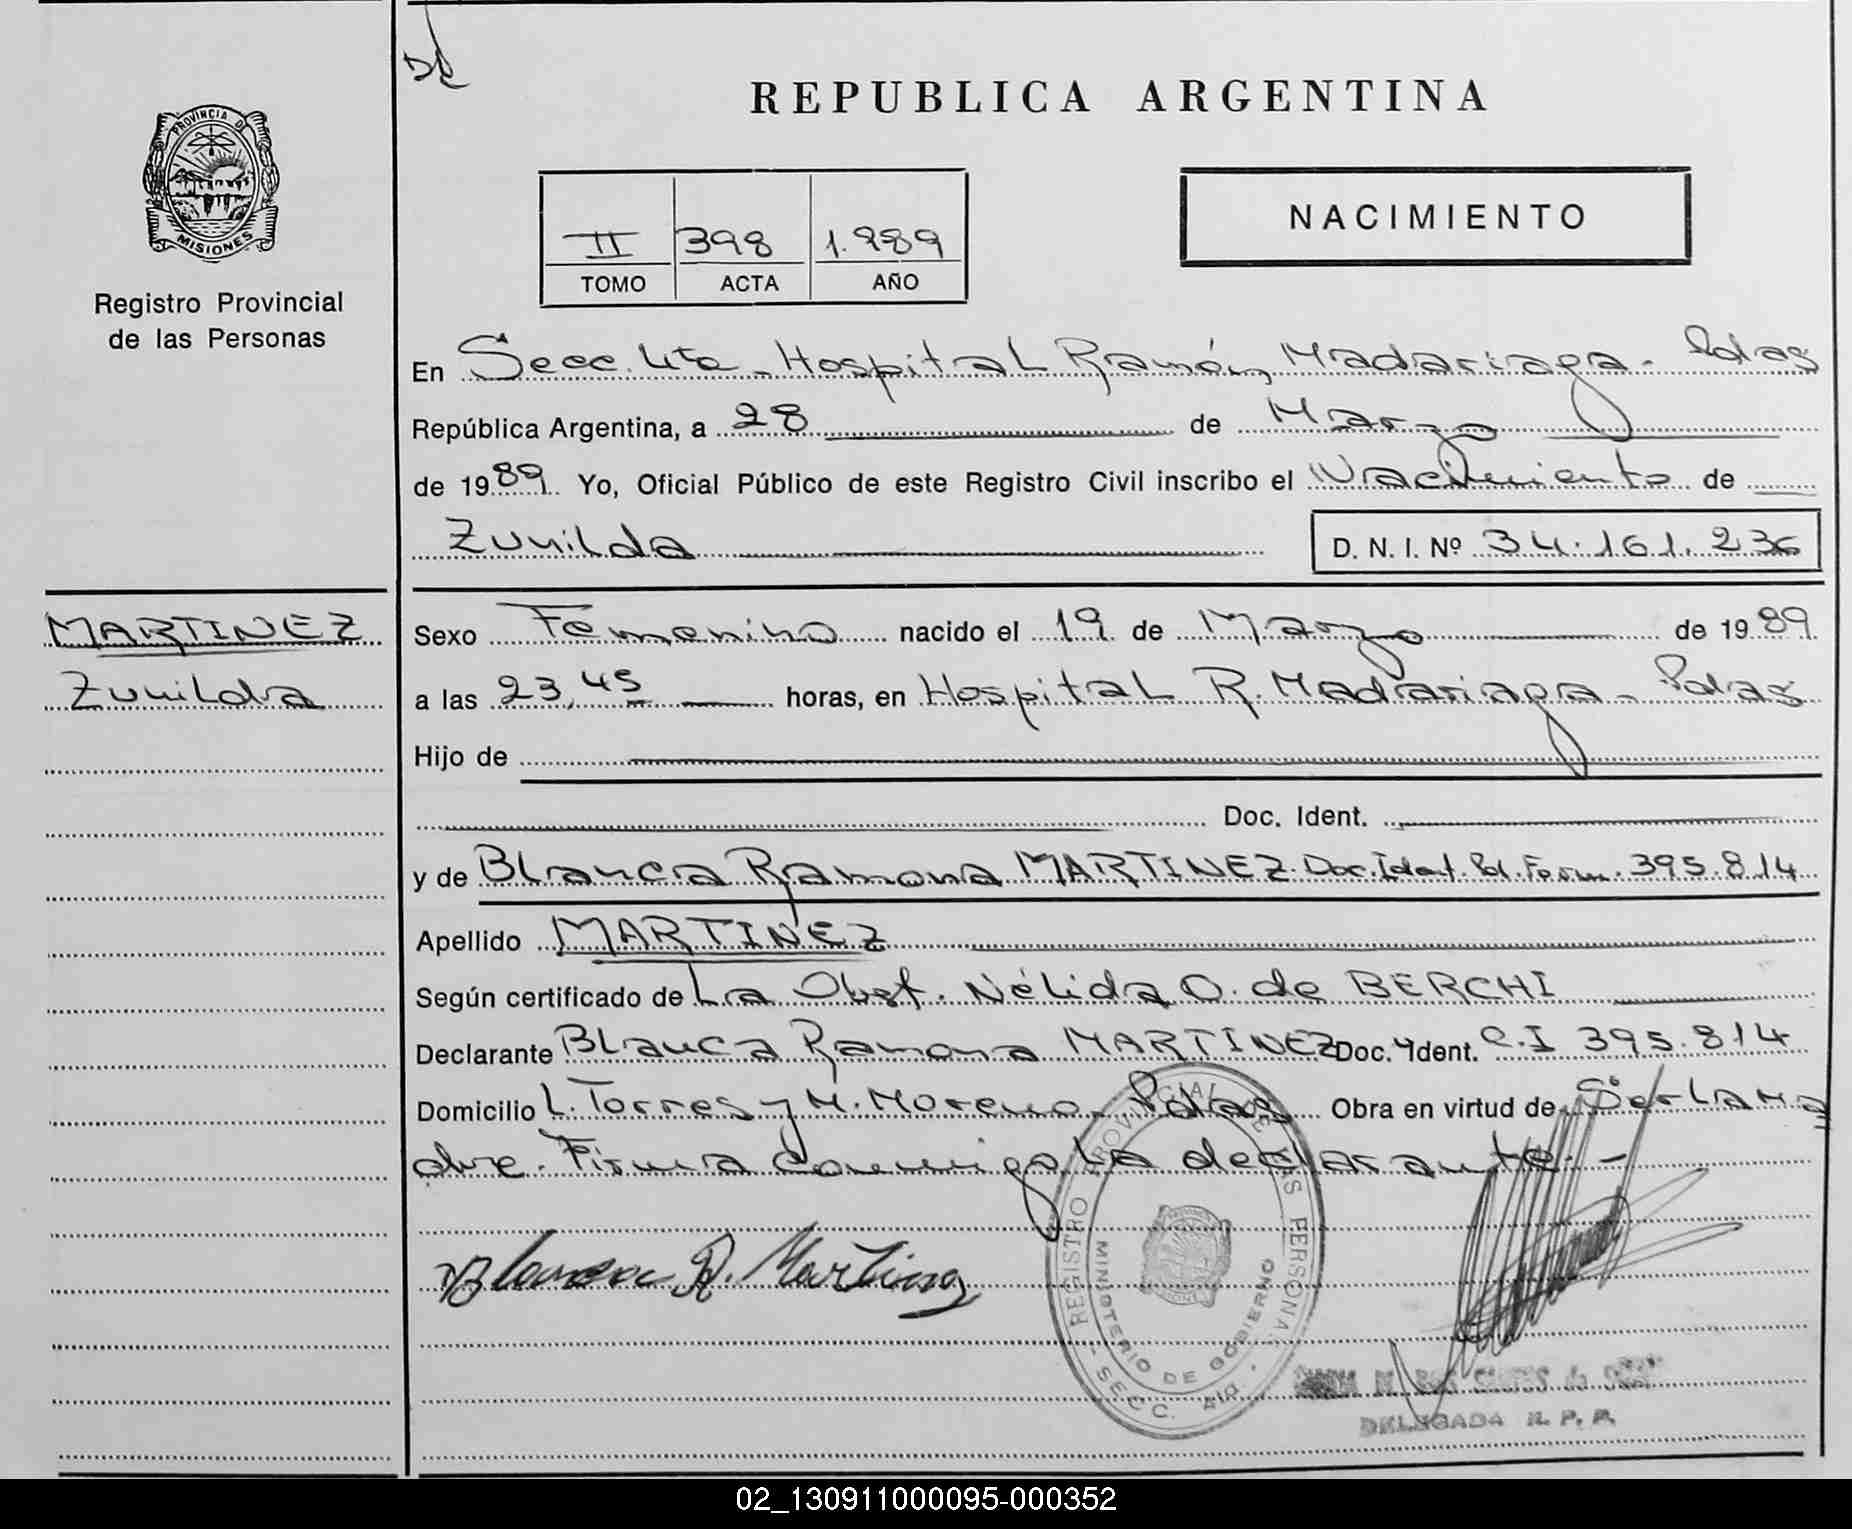 REPUBLICA ARGENTINA
PROVINCIA D
MISIONES
Registro Provincial
de las Personas
NACIMIENTO
II 398 1.989
TOMO ACTA AÑO
En Secc. 4ta - Hospital Ramón Madariaga - Pdas
República Argentina, a 28 de Marzo
de 1989 Yo, Oficial Público de este Registro Civil inscribo el Nacimiento de
Zunilda
D. N. I. Nº 34.161.236
MARTINEZ
Zunilda
Sexo Femenino nacido el 19 de Marzo de 1989
a las 23,45 horas, en Hospital R. Madariaga - Pdas
Hijo de
Doc. Ident.
y de Blanca Ramona MARTINEZ. Doc. Ident. Pol. Form. 395.814
Apellido MARTINEZ
Según certificado de La Obst. Nélida O. de BERCHI
Declarante Blanca Ramona MARTINEZ Doc. Ident. C.I 395.814
Domicilio L. Torres y M. Moreno - Pdas Obra en virtud de Ser La ma
dre. Firma conmigo La declarante. -
Blanca R. Martinez
REGISTRO PROVINCIAL DE LAS PERSONAS
MINISTERIO DE GOBIERNO
SECC. 4ta
DELEGADA R. P. P.
02_130911000095-000352